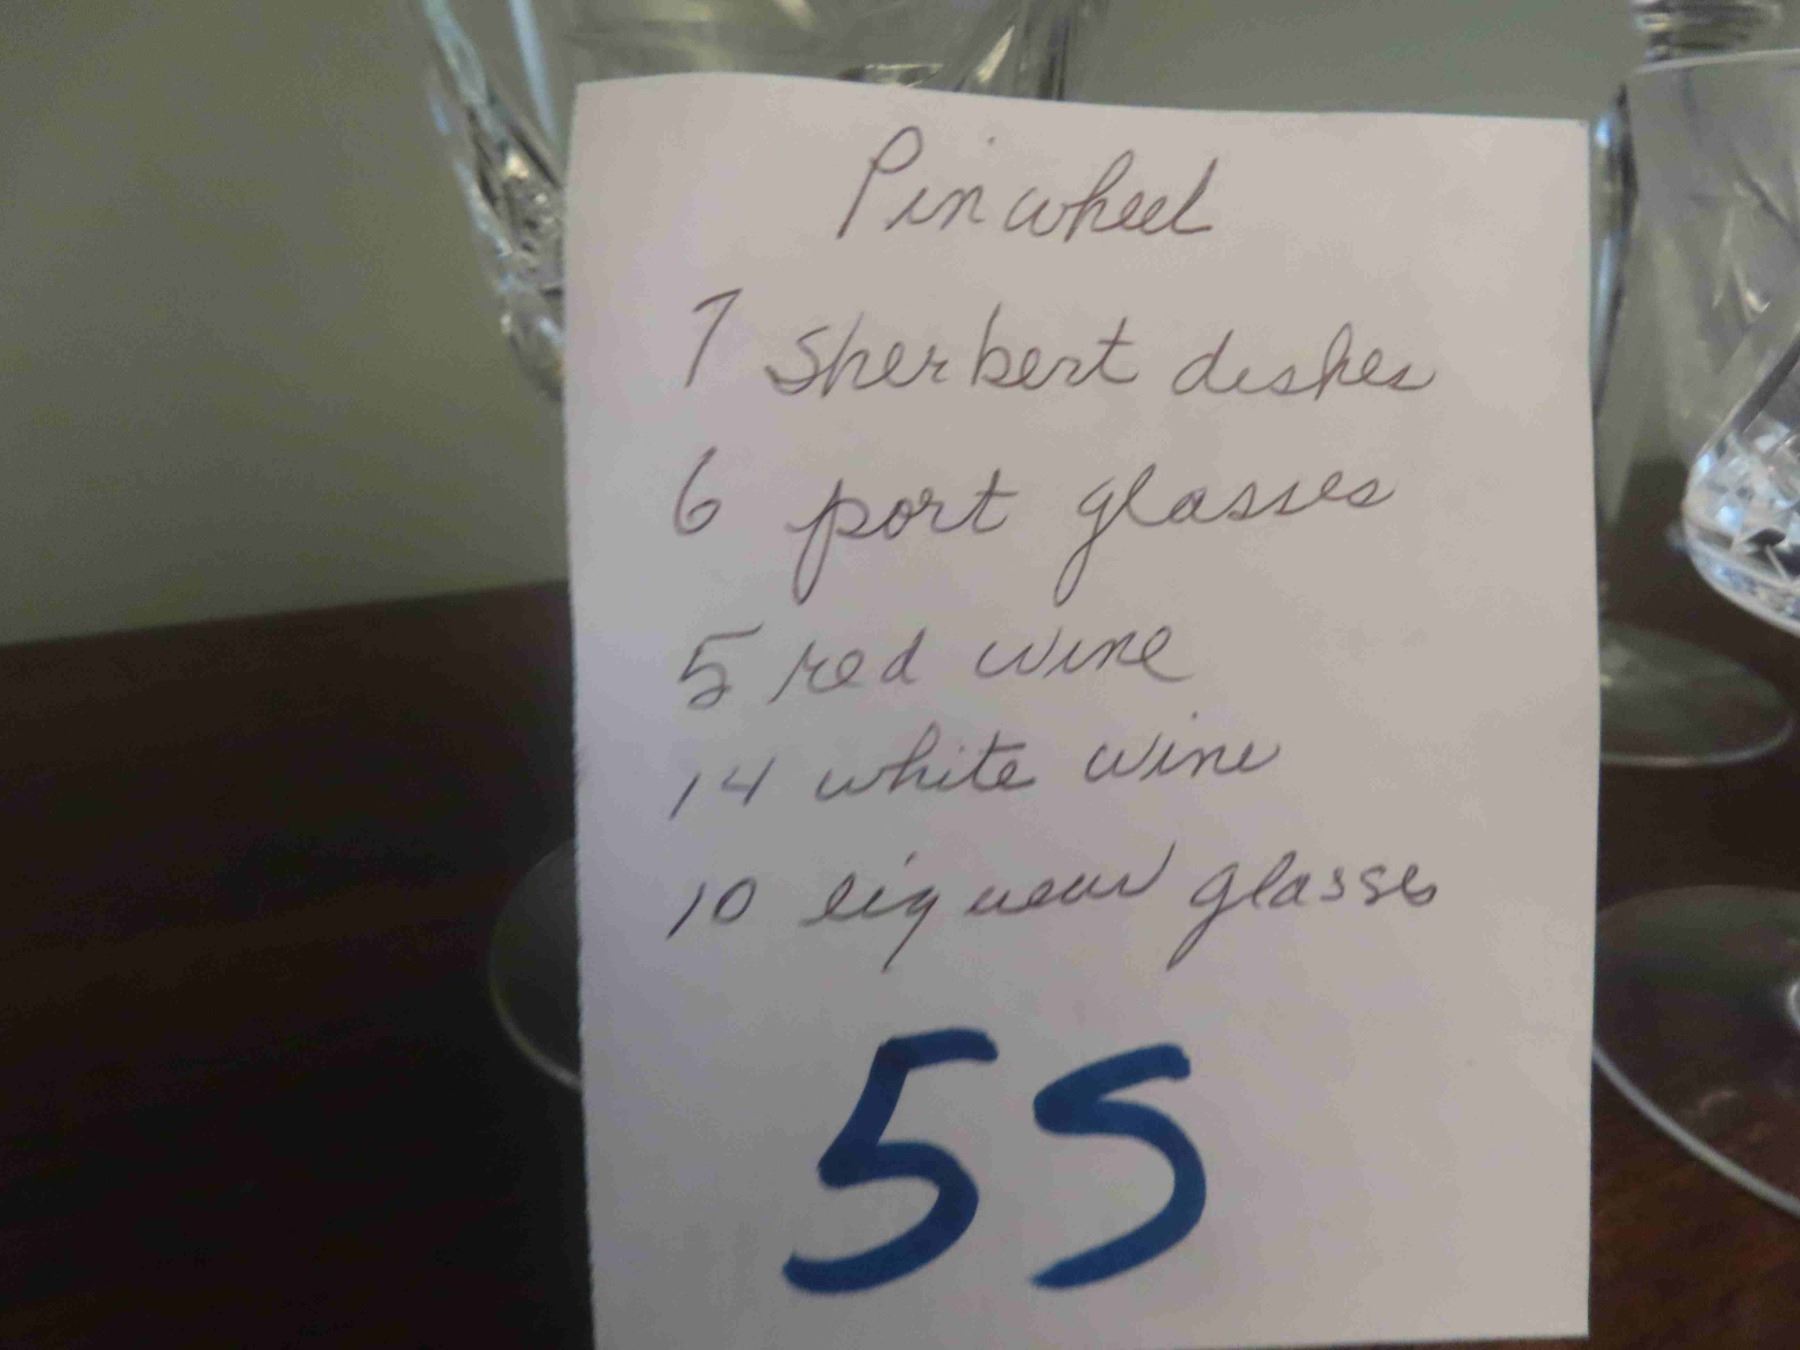 Pinwheel
7 Sherbert dishes
6 port glasses
5 red wine
14 white wine
10 liqueur glasses
55